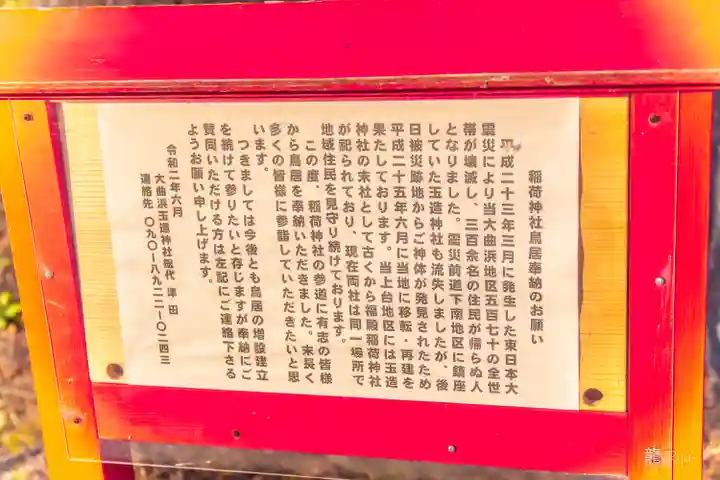 稲荷神社鳥居奉納のお願い
平成二十三年三月に発生した東日本大
震災により当大曲浜地区五百七十の全世
帯が壊滅し、三百余名の住民が帰らぬ人
となりました。震災前道下南地区に鎮座
していた玉造神社も流失しましたが、後
日被災跡地からご神体が発見されたため
平成二十五年六月に当地に移転・再建を
果たしております。当上台地区には玉造
神社の末社として古くから福殿稲荷神社
が祀られており、現在両社は同一場所で
地域住民を見守り続けております。
この度、稲荷神社の参道に有志の皆様
から鳥居を奉納いただきました。末長く
多くの皆様に参詣していただきたいと思
います。
つきましては今後とも鳥居の増設建立
を続けて参りたいと存じますが奉納にご
賛同いただける方は左記にご連絡下さる
ようお願い申し上げます。
令和二年六月
大曲浜玉造神社総代 津田
連絡先 〇九〇ー八九二二ー〇二四三
龍